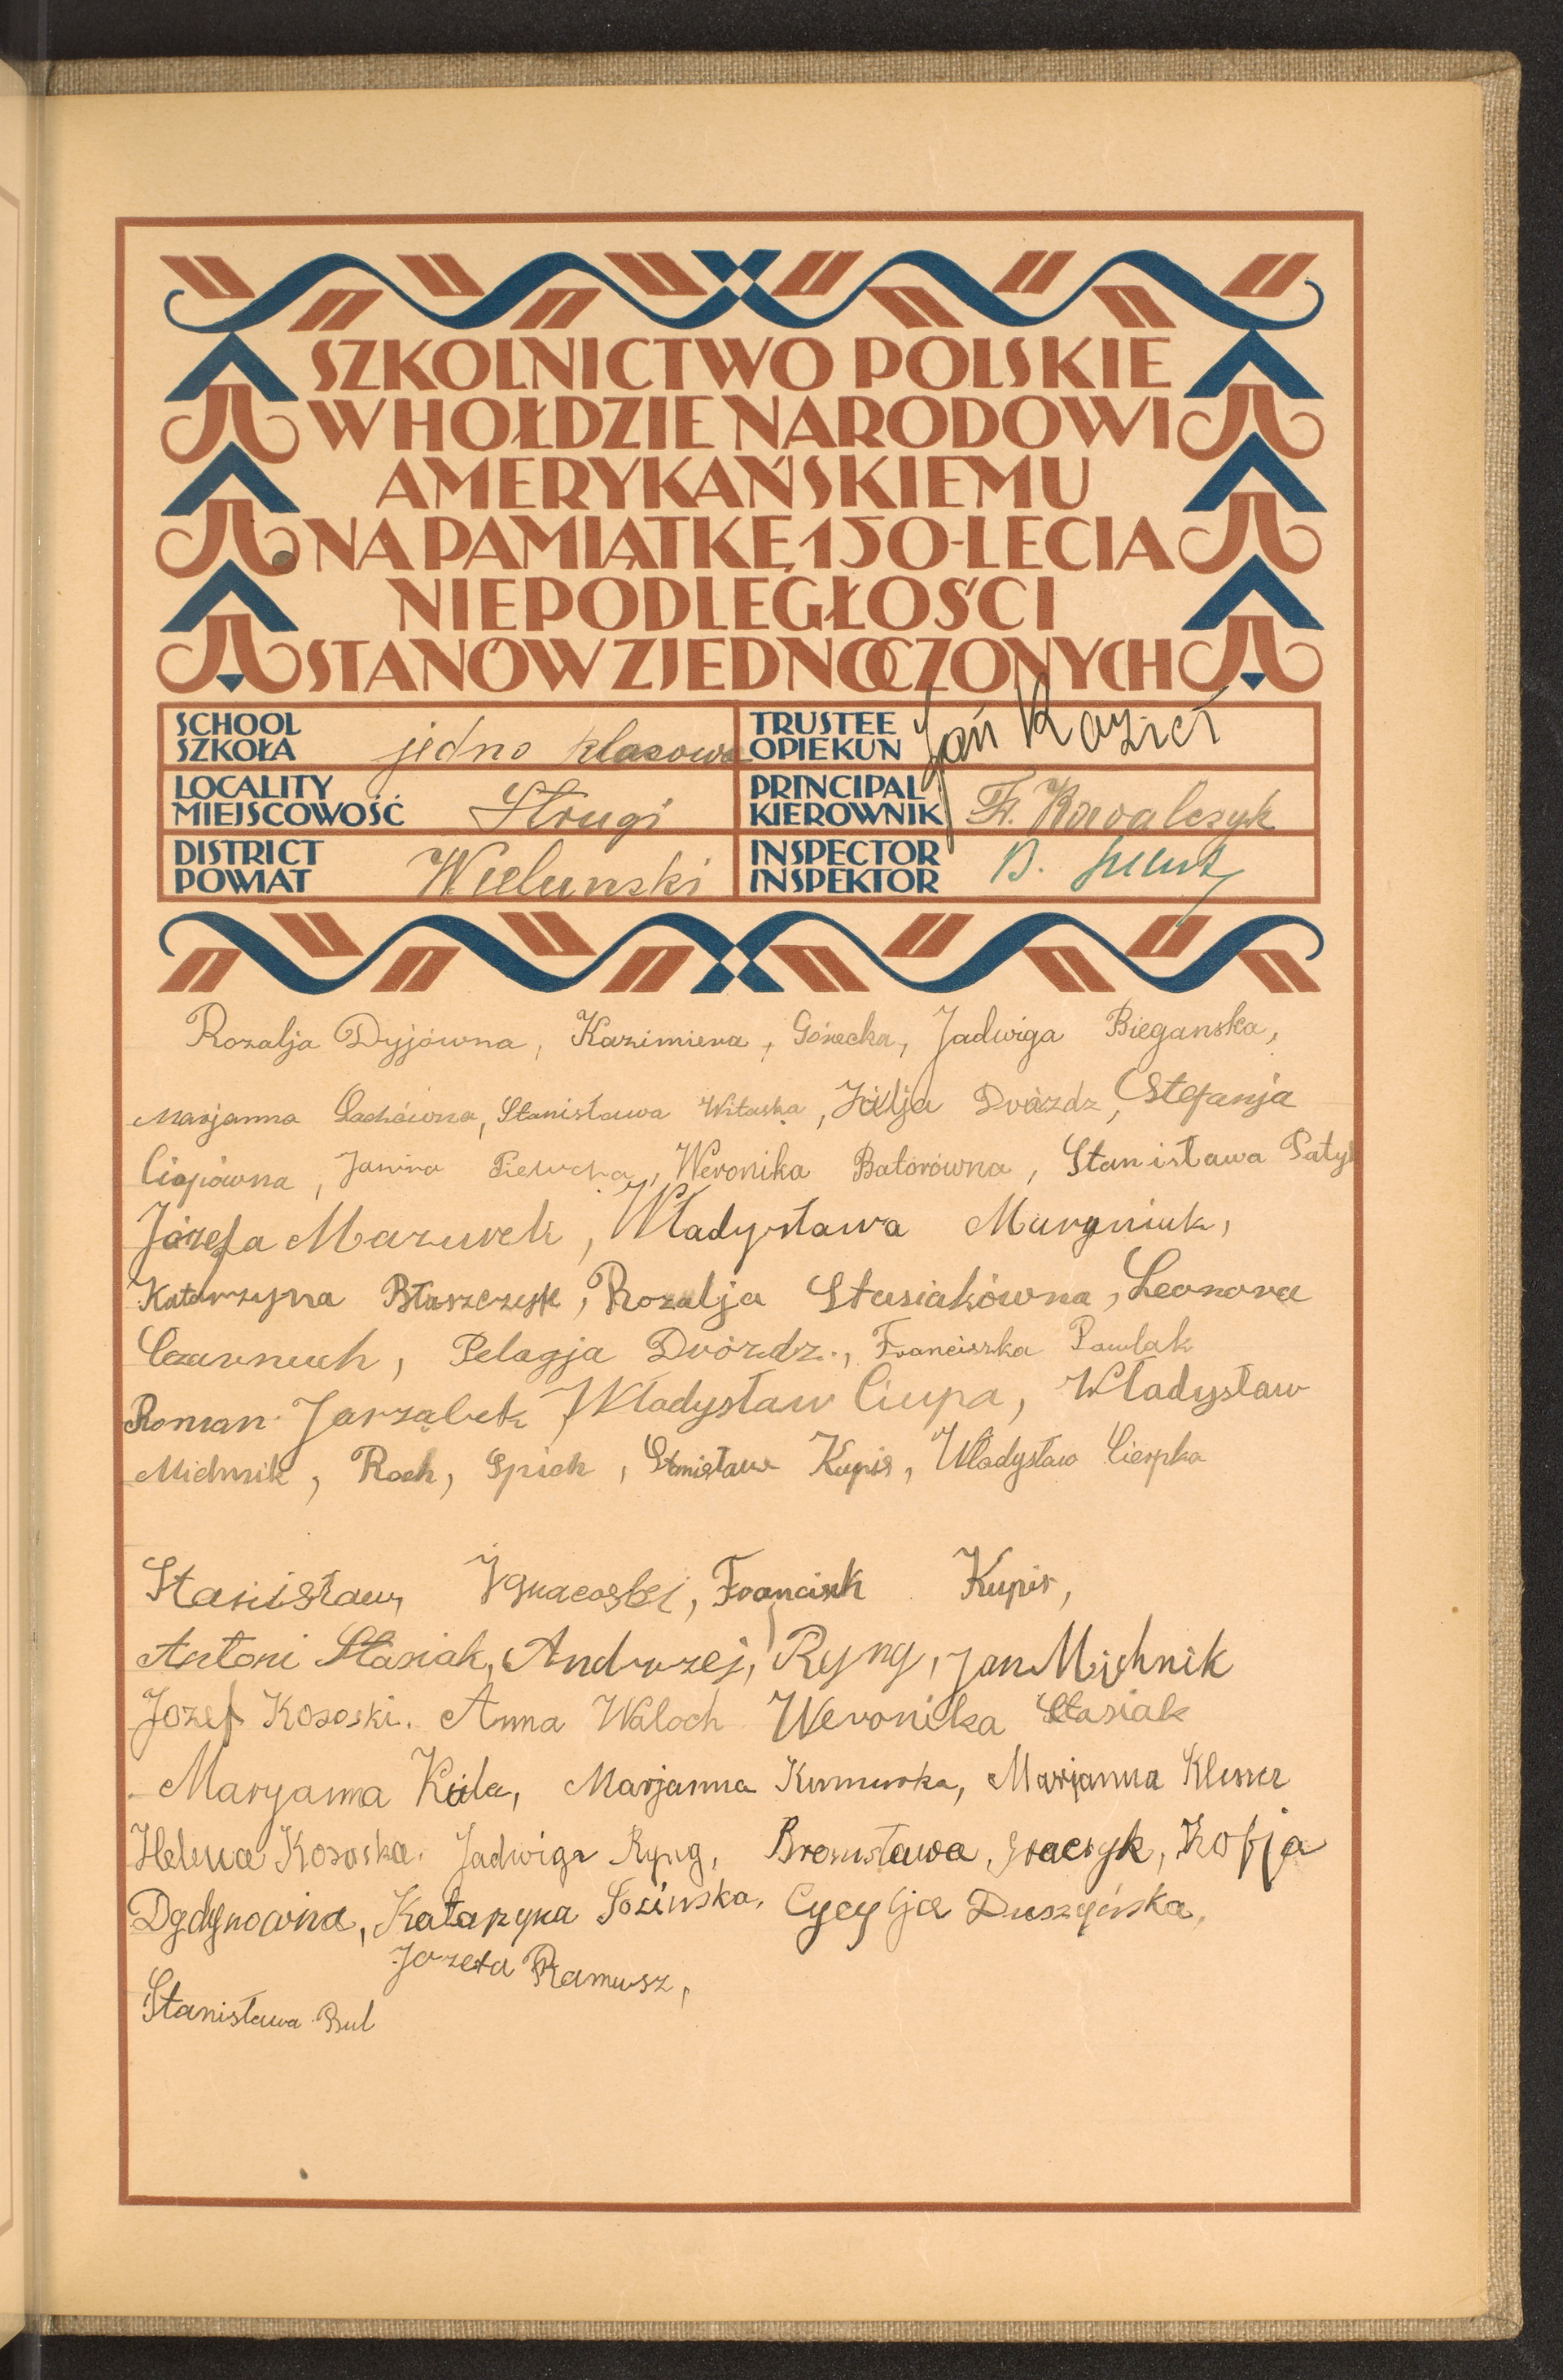 SZKOLNICTWO POLSKIE
W HOŁDZIE NARODOWI
AMERYKAŃSKIEMU
NA PAMIĄTKĘ 150-LECIA
NIEPODLEGŁOŚCI
STANÓW ZJEDNOCZONYCH
SCHOOL
SZKOŁA
jedno klasowa
TRUSTEE
OPIEKUN
Jań Kozieł
LOCALITY
MIEJSCOWOŚĆ
Strugi
PRINCIPAL
KIEROWNIK
Fr. Kowalczyk
DISTRICT
POWIAT
Wielunski
INSPECTOR
INSPEKTOR
B.
Rozalja Dyjówna, Kazimiera, Górecka, Jadwiga Bieganska,
Marjanna Lachówna, Stanisława Witaska, Julja Dvózdz, Stefanja
Ciopówna, Janina Pieucha, Weronika Batorówna, Stanisława Patyk
Józefa Mazurek, Władysława Muryniuk,
Katarzyna Błaszczyk, Rozalja Stasiakówna, Leonora
Czarnuch, Pelagja Dvózdz., Franciszka Pawlak
Roman Jarząbek, Władysław Ciupa, Władysław
Michnik, Roch, Spich, Stanisław Kupis, Władysław Cierpka
Stanisław, Ignacoski, Francisek Kupis,
Antoni Stasiak, Andrzej, Ryng, Jan Michnik
Jozef Kososki. Anna Waloch Weronika Stasiak
Maryanna Kula, Marjanna Kumurska, Marjanna
Helena Kososka. Jadwiga Ryng, Bronisława, Graczyk, Zofja
Dydynowna, Katarzyna Łozinska, Cycylja Duszyńska,
Jozefa Ramusz,
Stanisława Bul